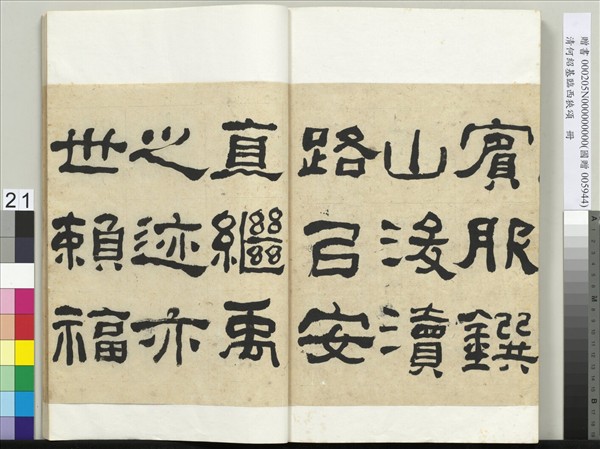 賓服鐉
山浚瀆
路㠯安
直繼禹
之迹亦
世賴福
贈書 000205N000000000(國贈 005944)
清何紹基臨西狹頌 冊
21